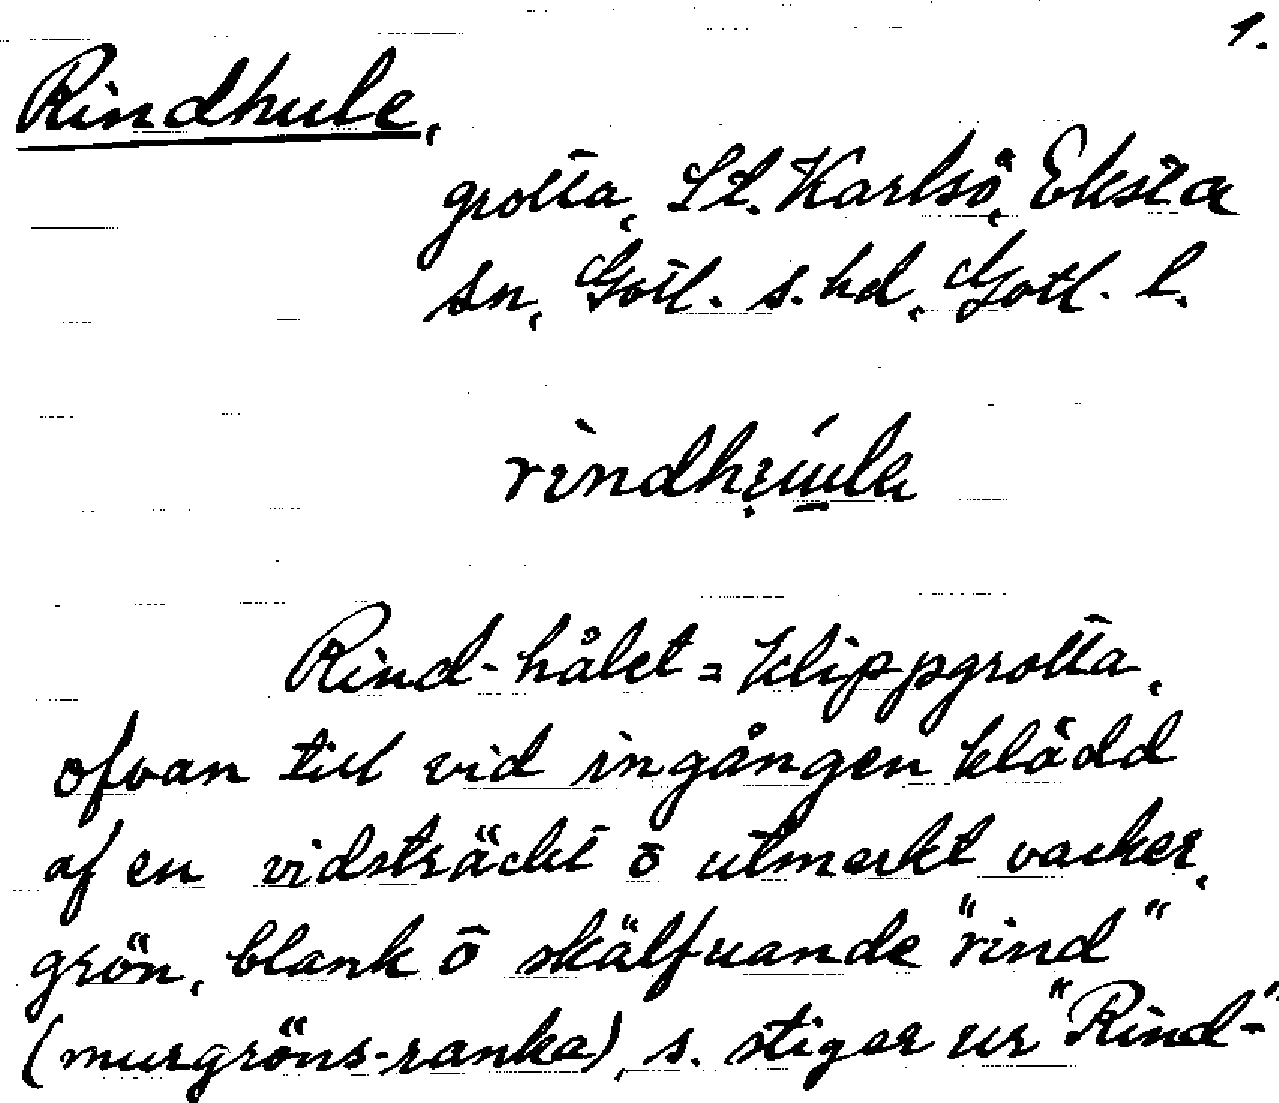 1.
Rindhule,
grotta, St. Karlsö, Eksta
sn, Gotl. s. hd, Gotl. l.
Rind-hålet = klippgrotta,
ofvan till vid ingången klädd
af en vidsträckt ō utmerkt vacker,
grön, blank ō skälfvande "rind"
(murgröns-ranka), s. stiger ur "Rind-"